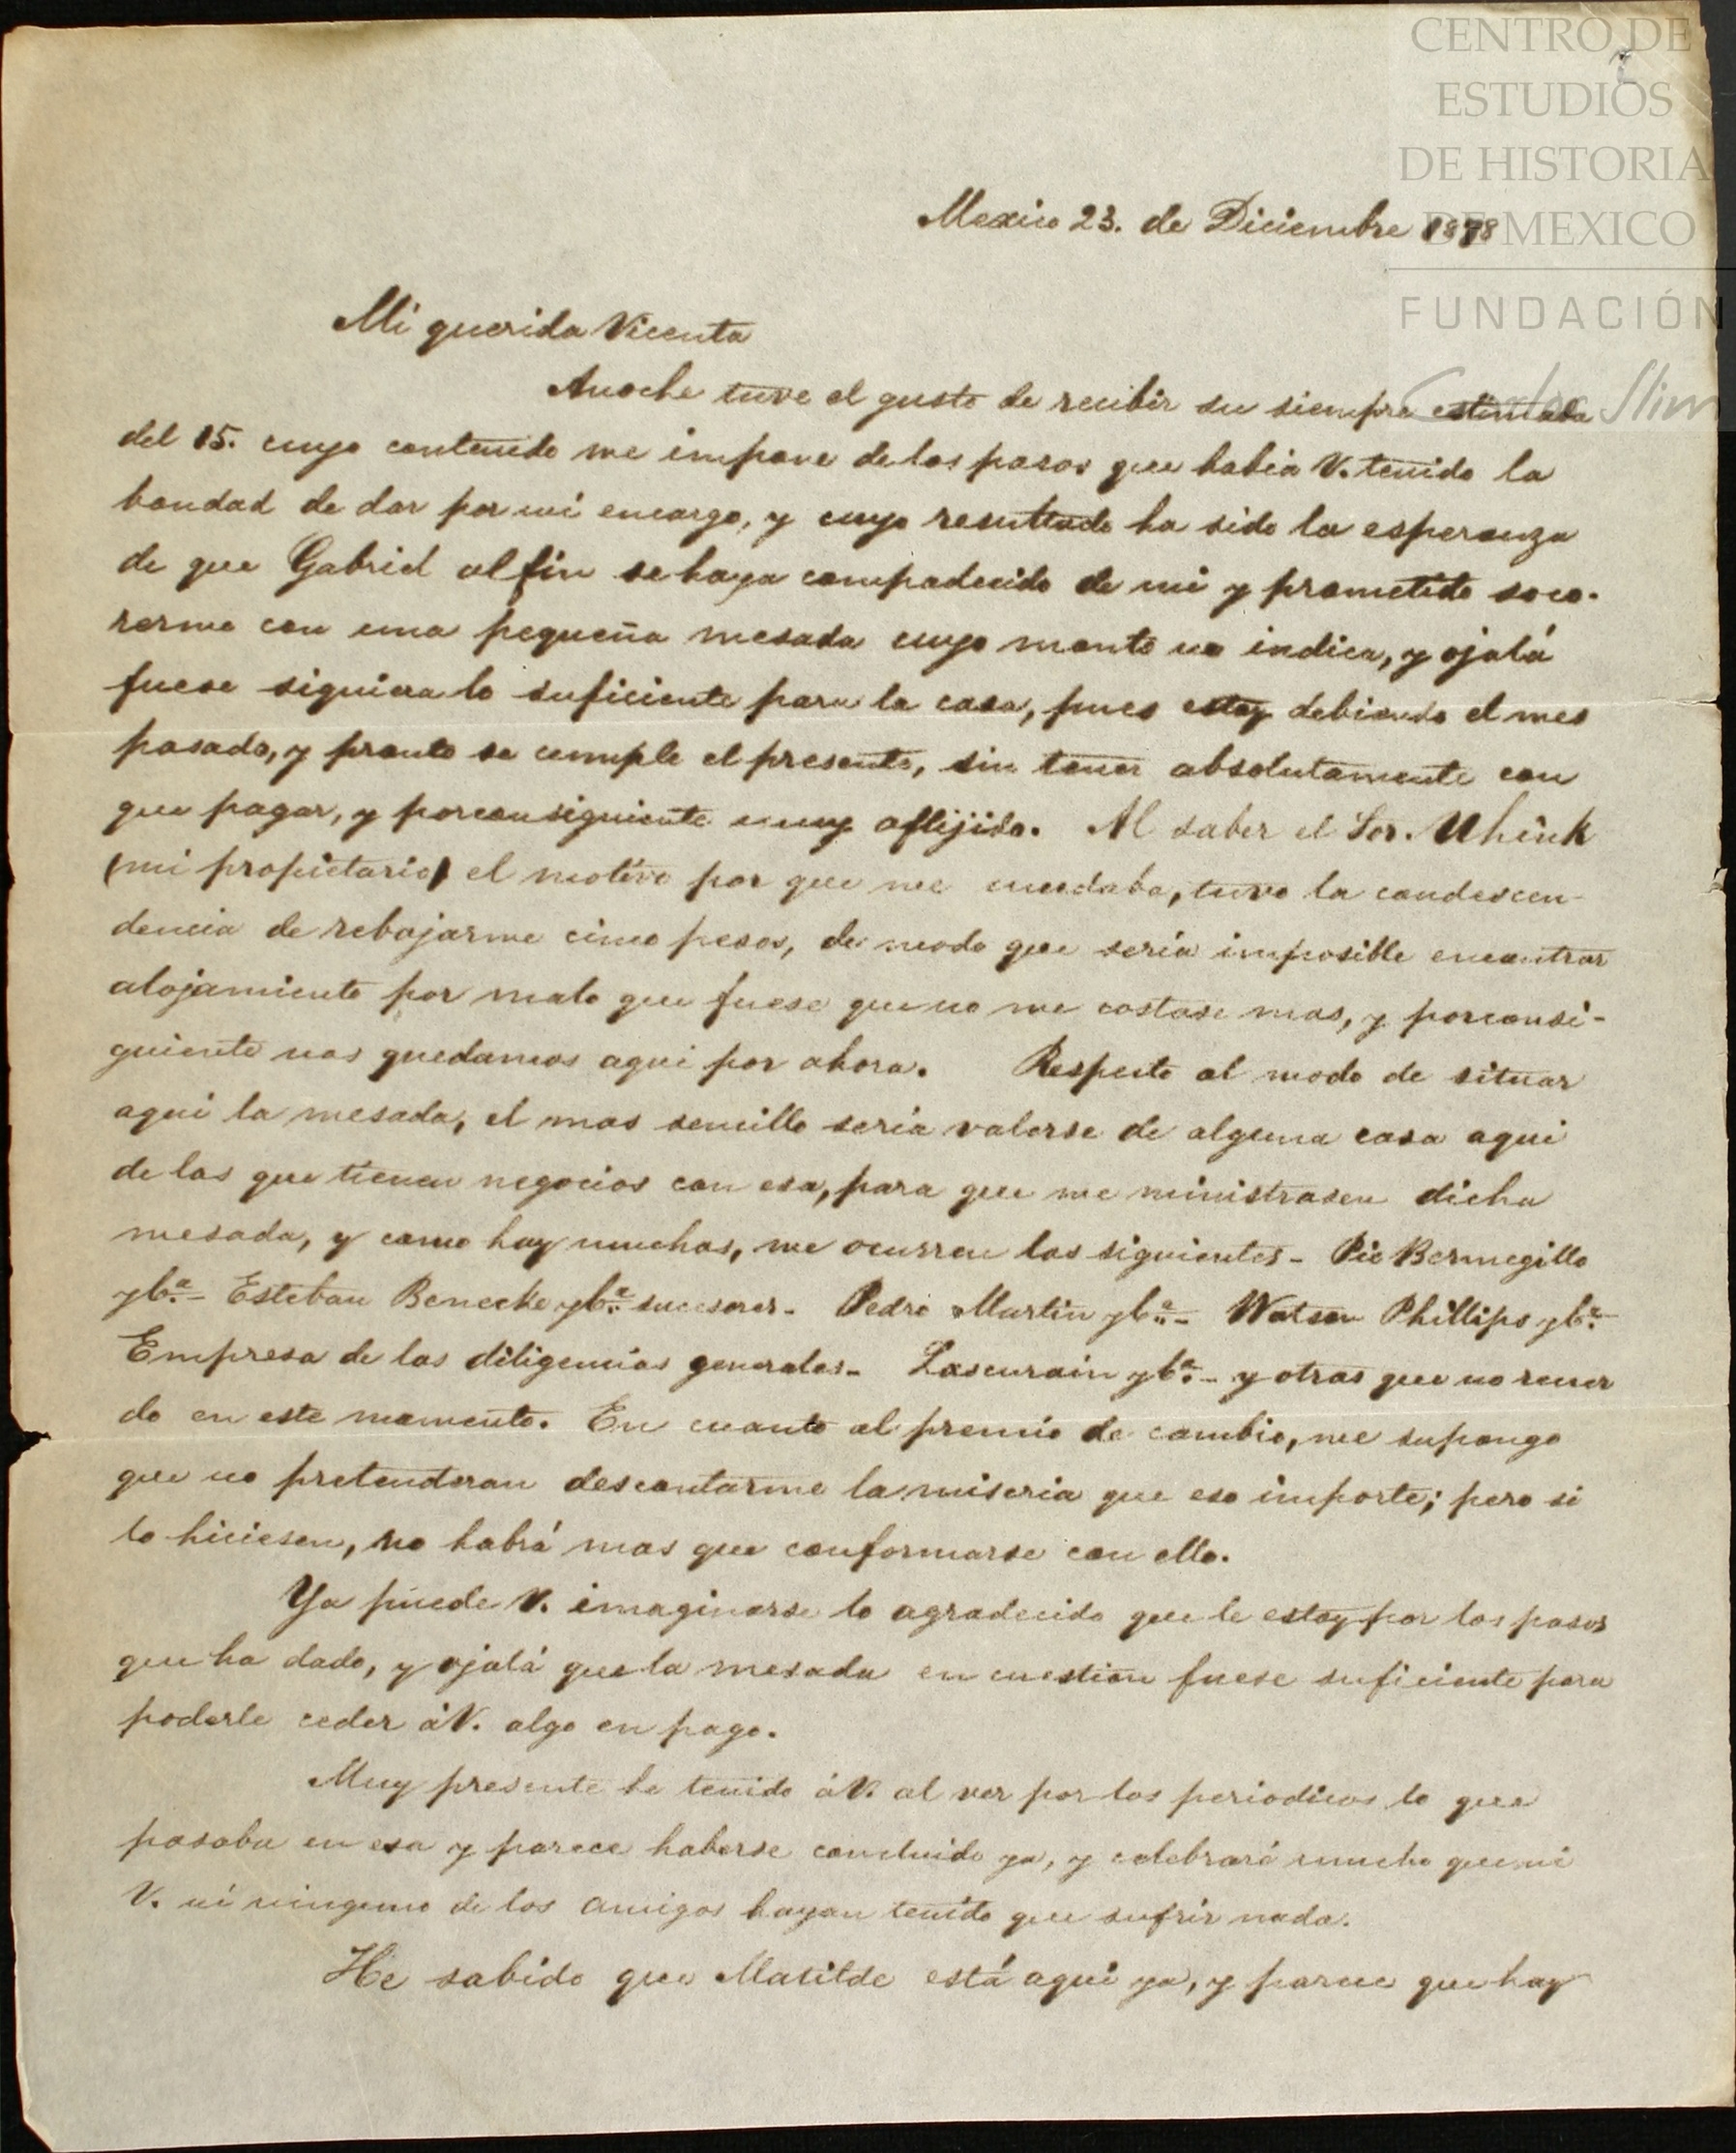 CENTRO DE
ESTUDIOS
DE HISTORIA
DE MEXICO
FUNDACIÓN
Carlos Slim
Mexico 23. de Diciembre 1878
Mi querida Vicenta
Anoche tuve el gusto de recibir su siempre estimada
del 15. cuyo contenido me impone de los pasos que habia V. tenido la
bondad de dar por mi encargo, y cuyo resultado ha sido la esperanza
de que Gabriel al fin se haya compadecido de mi y prometido soco-
rerme con una pequeña mesada cuyo monto no indica, y ojalá
fuese siquiera lo suficiente para la casa, pues estoy debiendo el mes
pasado, y pronto se cumple el presente, sin tener absolutamente con
que pagar, y porconsiguiente muy aflijido. Al saber el Sor. Uhink
(mi propietario) el motivo por que me mudaba, tuvo la condescen-
dencia de rebajarme cinco pesos, de modo que seria imposible encontrar
alojamiento por malo que fuese que no me costase mas, y porconsi-
guiente nos quedamos aqui por ahora. Respecto al modo de situar
aqui la mesada, el mas sencillo seria valerse de alguna casa aqui
de las que tienen negocios con esa, para que me ministrasen dicha
mesada, y como hay muchas, me ocurren las siguientes - Pio Bermegillo
y Ca.- Esteban Benecke y Ca. sucesores - Pedro Martin y Ca.- Watson Phillips y Ca.
Empresa de las diligencias generales - Lascurain y Ca.- y otras que no recuer
do en este momento. En cuanto al premio de cambio, me supongo
que no pretenderan descontarme la miseria que eso importe; pero si
lo hiciesen, no habrá mas que conformarse con ello.
Ya puede V. imaginarse lo agradecido que le estoy por los pasos
que ha dado, y ojalá que la mesada en cuestion fuese suficiente para
poderle ceder á V. algo en pago.
Muy presente he tenido á V. al ver por los periodicos lo que
pasaba en esa y parece haberse concluido ya, y celebraré mucho que ni
V. ni ninguno de los amigos hayan tenido que sufrir nada.
He sabido que Matilde está aqui ya, y parece que hay